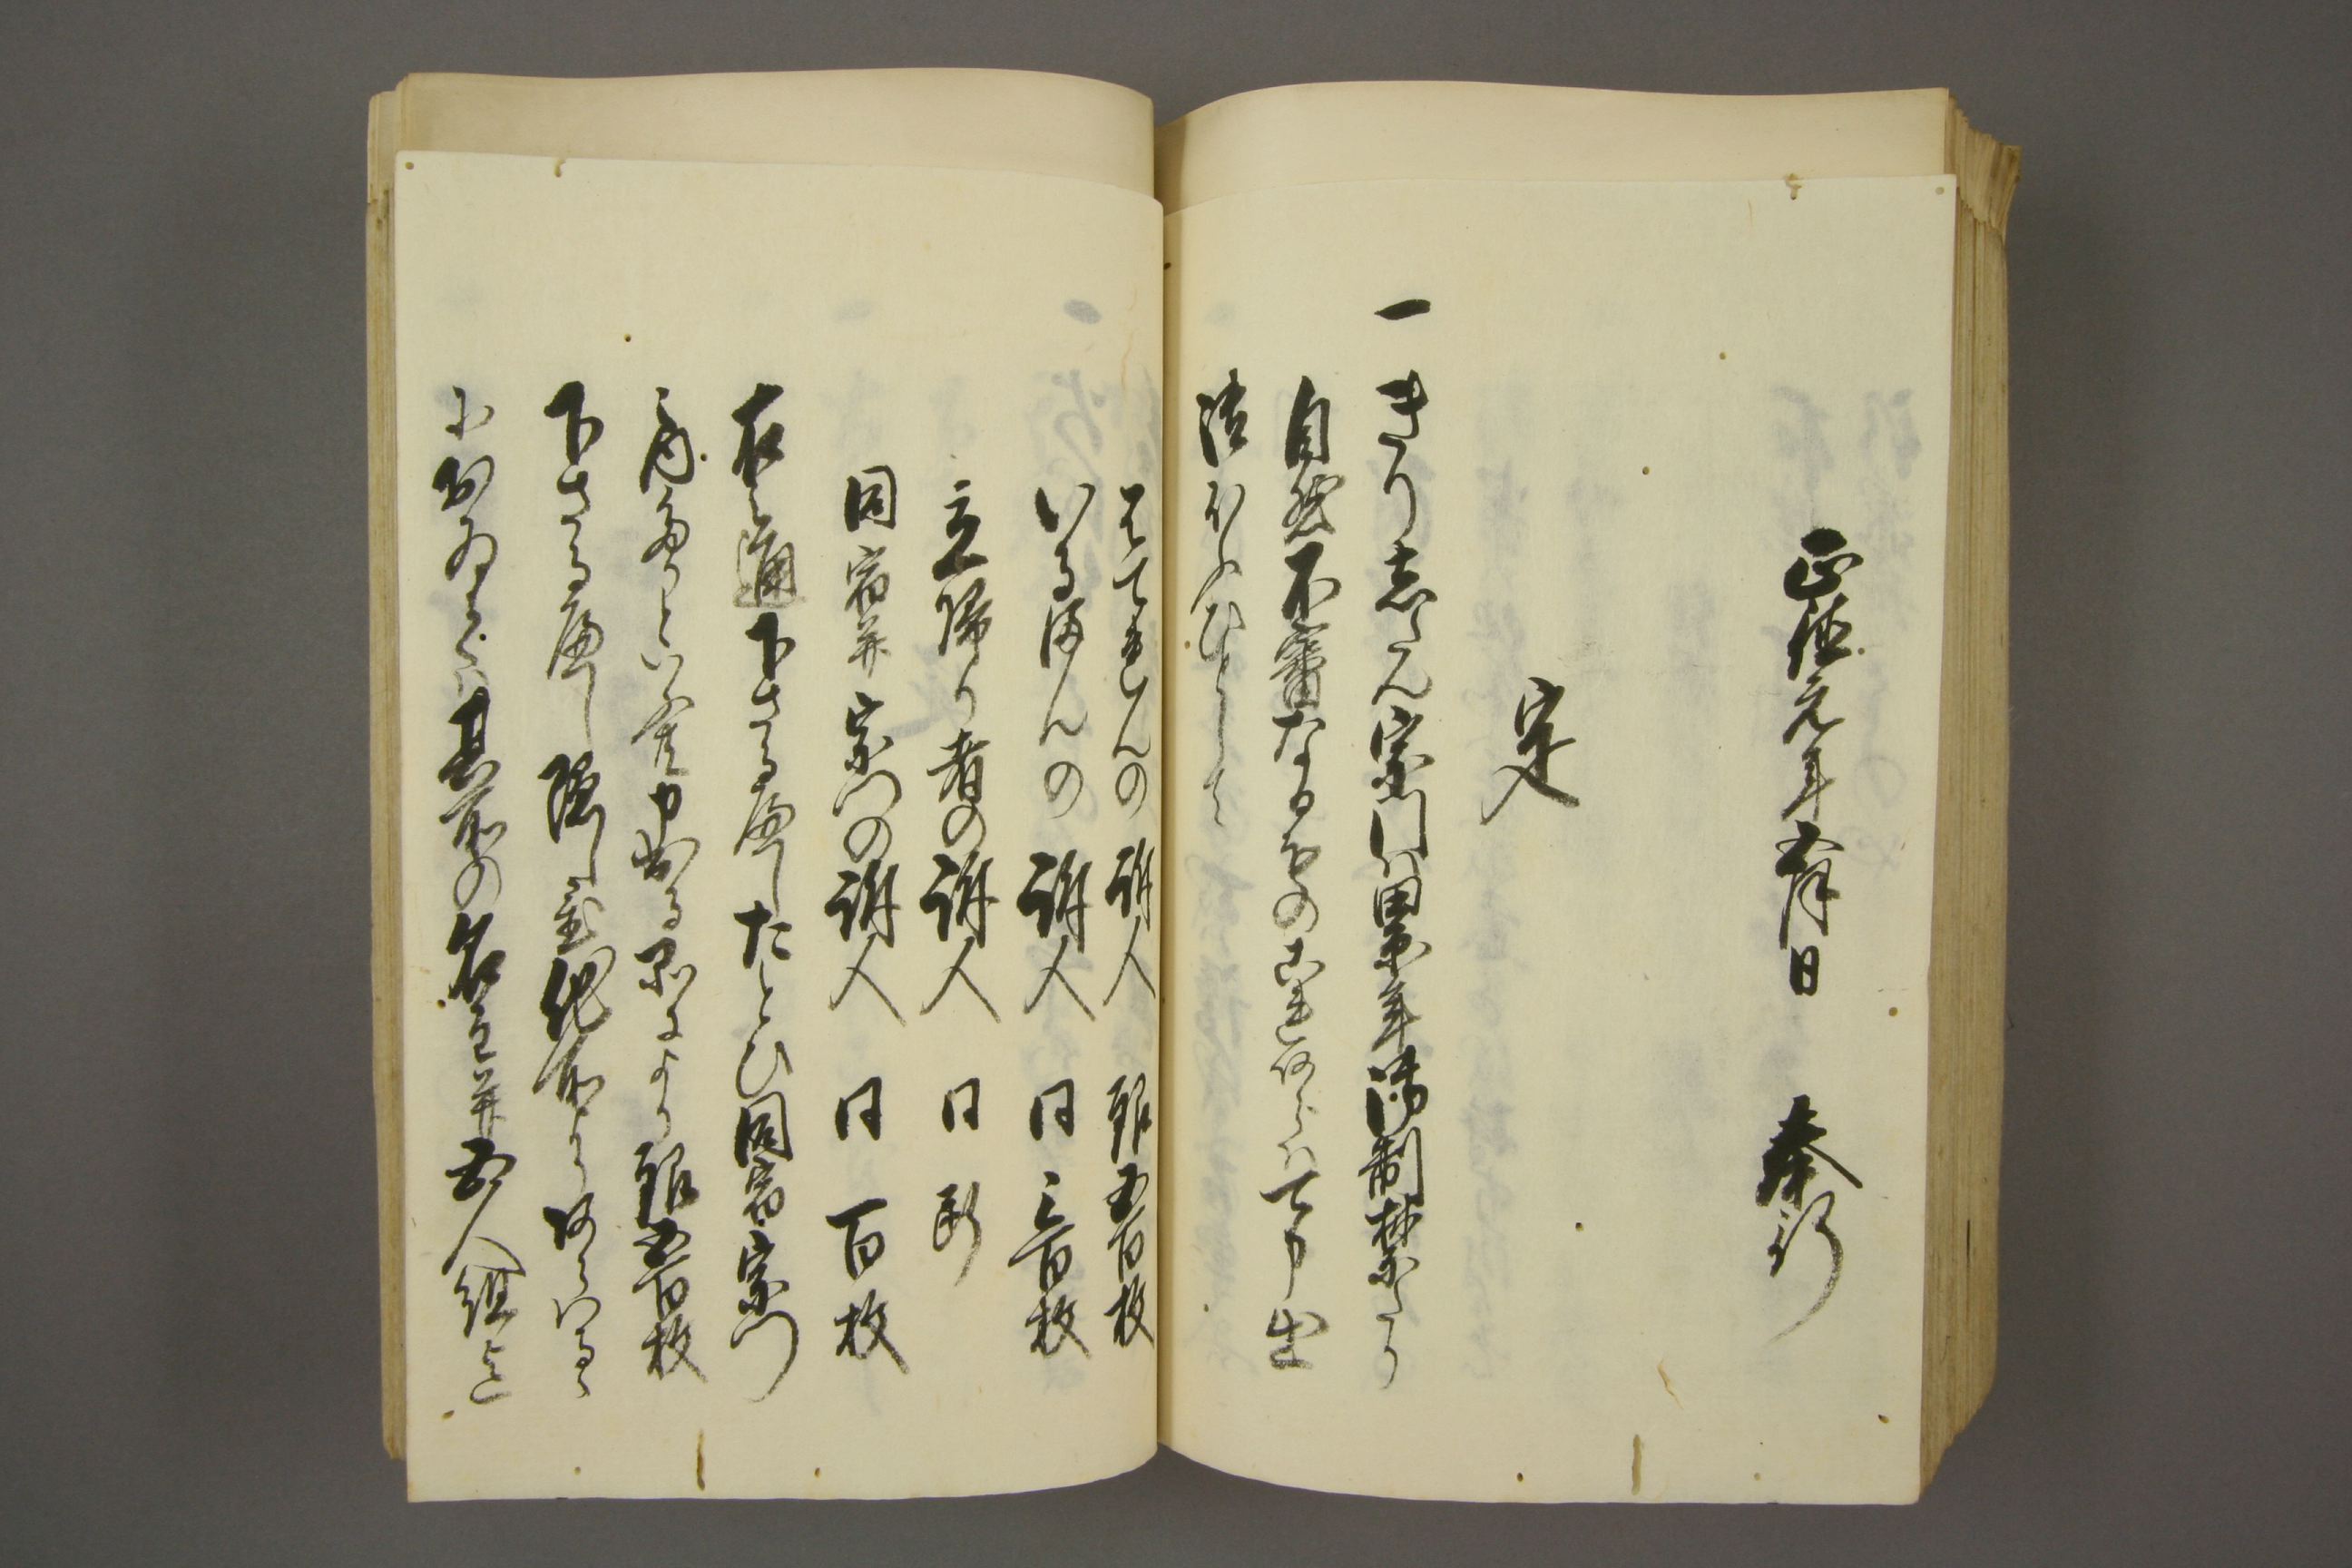 正徳元年五月日　奉行
定
一 きりしたん宗門は累年御制禁たり
自然不審なるものこれあらは可申出
御ほうひとして
はてれんの訴人　銀五百枚
いるまんの訴人　同三百枚
立帰り者の訴人　同断
同宿并宗門の訴人　同百枚
右之通下さるへしたとひ同宿宗門
之内たりといふ共申出る品により銀五百枚
下さるへし隠し置他所よりあらはるゝ
におゐては其所の名主并五人組迄